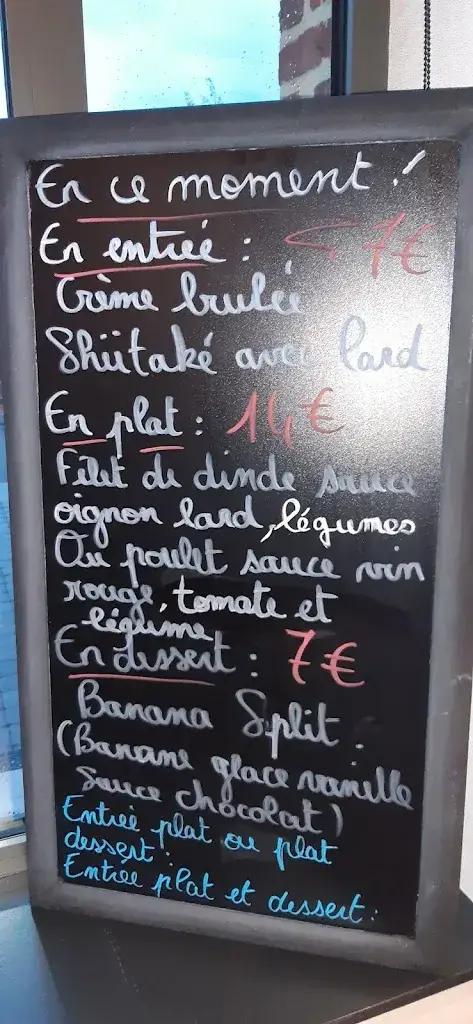 En ce moment !
En entrée : 7€
Crème brulée
Shiitaké avec lard
En plat : 14€
Filet de dinde sauce
oignon lard, légumes
Ou poulet sauce vin
rouge, tomate et
légume
En dessert : 7€
Banana Split.
(Banane glace vanille
sauce chocolat)
Entrée plat ou plat
dessert :
Entrée plat et dessert :